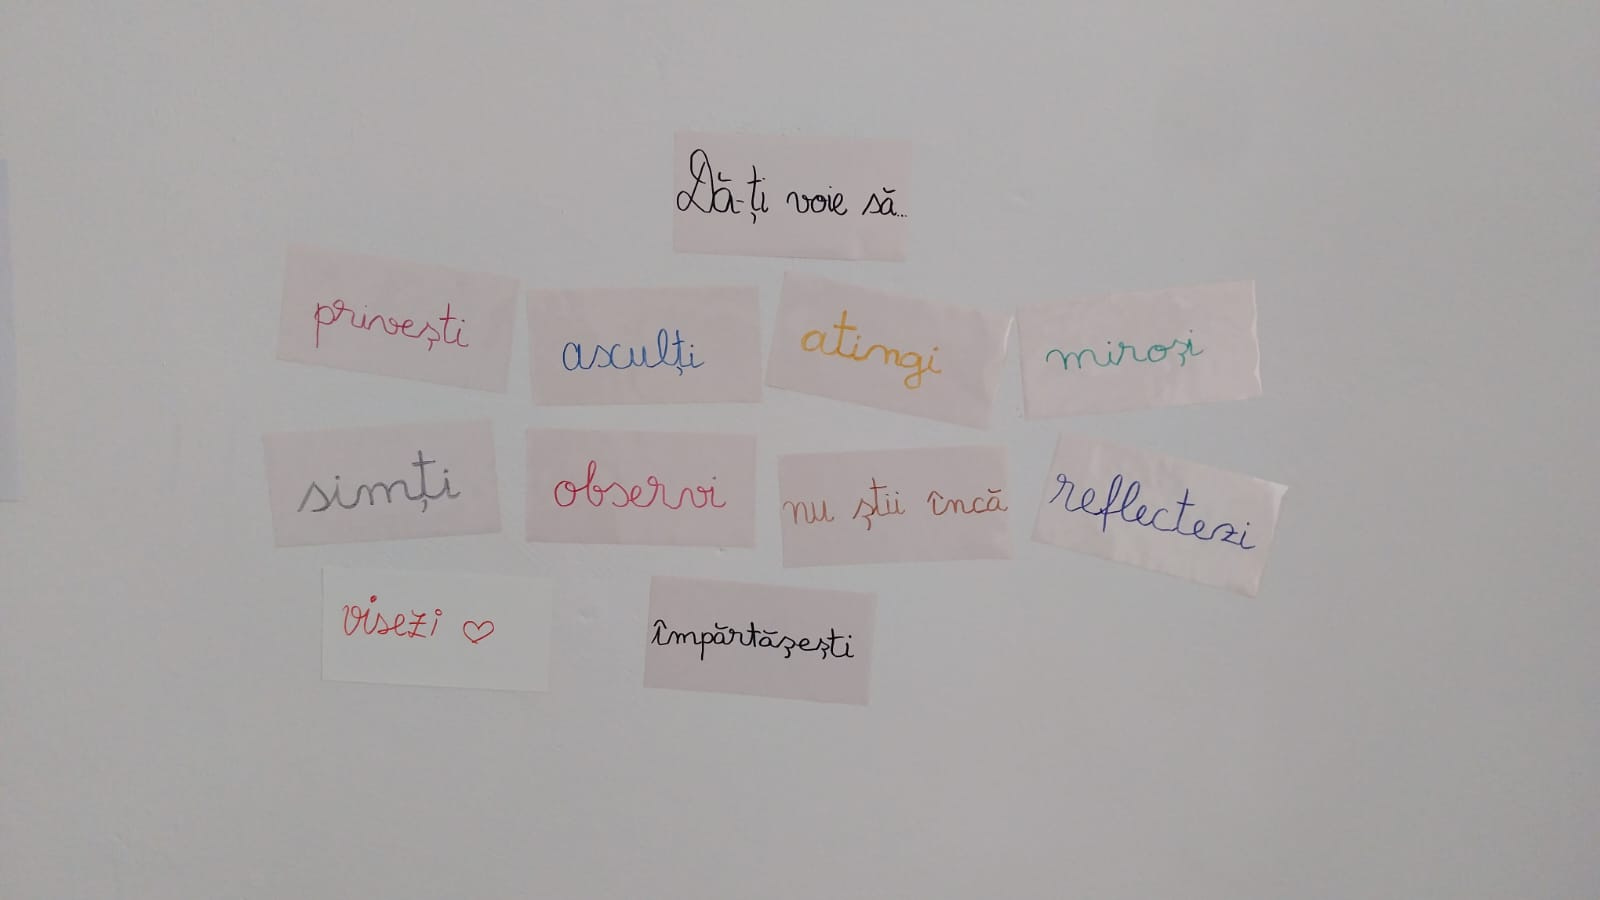 Dă-ți voie să...
privești
asculți
atingi
miroși
simți
observi
nu știi încă
reflectezi
visezi ♡
împărtășești